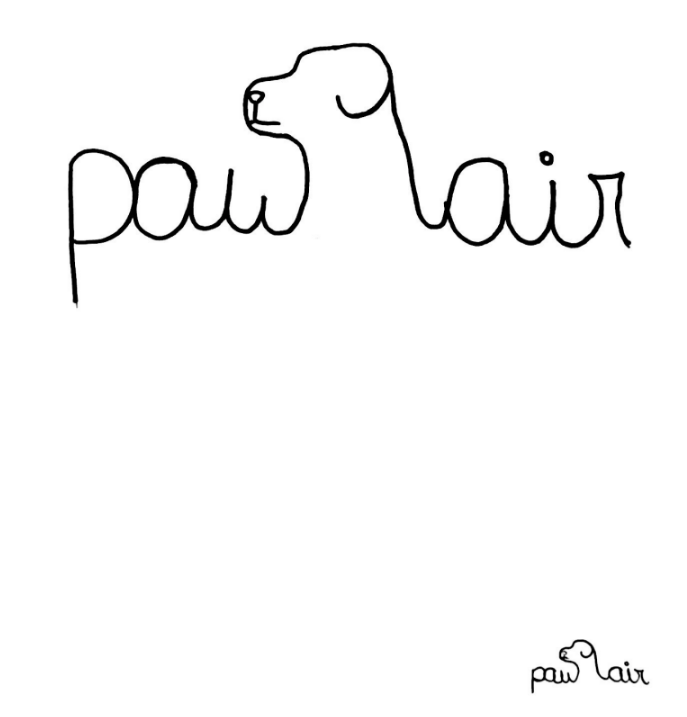 paw lair
paw lair